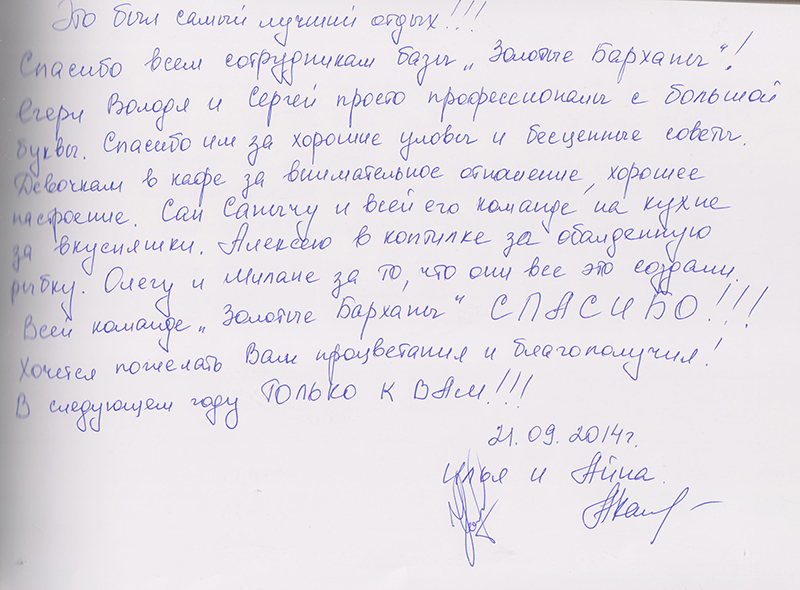 Это был самый лучший отдых!!!
Спасибо всем сотрудникам базы „Золотые Барханы“!
Егери Володя и Сергей просто профессионалы с большой
буквы. Спасибо им за хорошие уловы и бесценные советы.
Девочкам в кафе за внимательное отношение, хорошее
настроение. Сан Санычу и всей его команде на кухне
за вкусняшки. Алексею в коптилке за обалденную
рыбку. Олегу и Милане за то, что они все это создали.
Всей команде „Золотые Барханы“ СПАСИБО!!!
Хочется пожелать Вам процветания и благополучия!
В следующем году ТОЛЬКО К ВАМ!!!
21.09.2014г.
Илья и Айна.